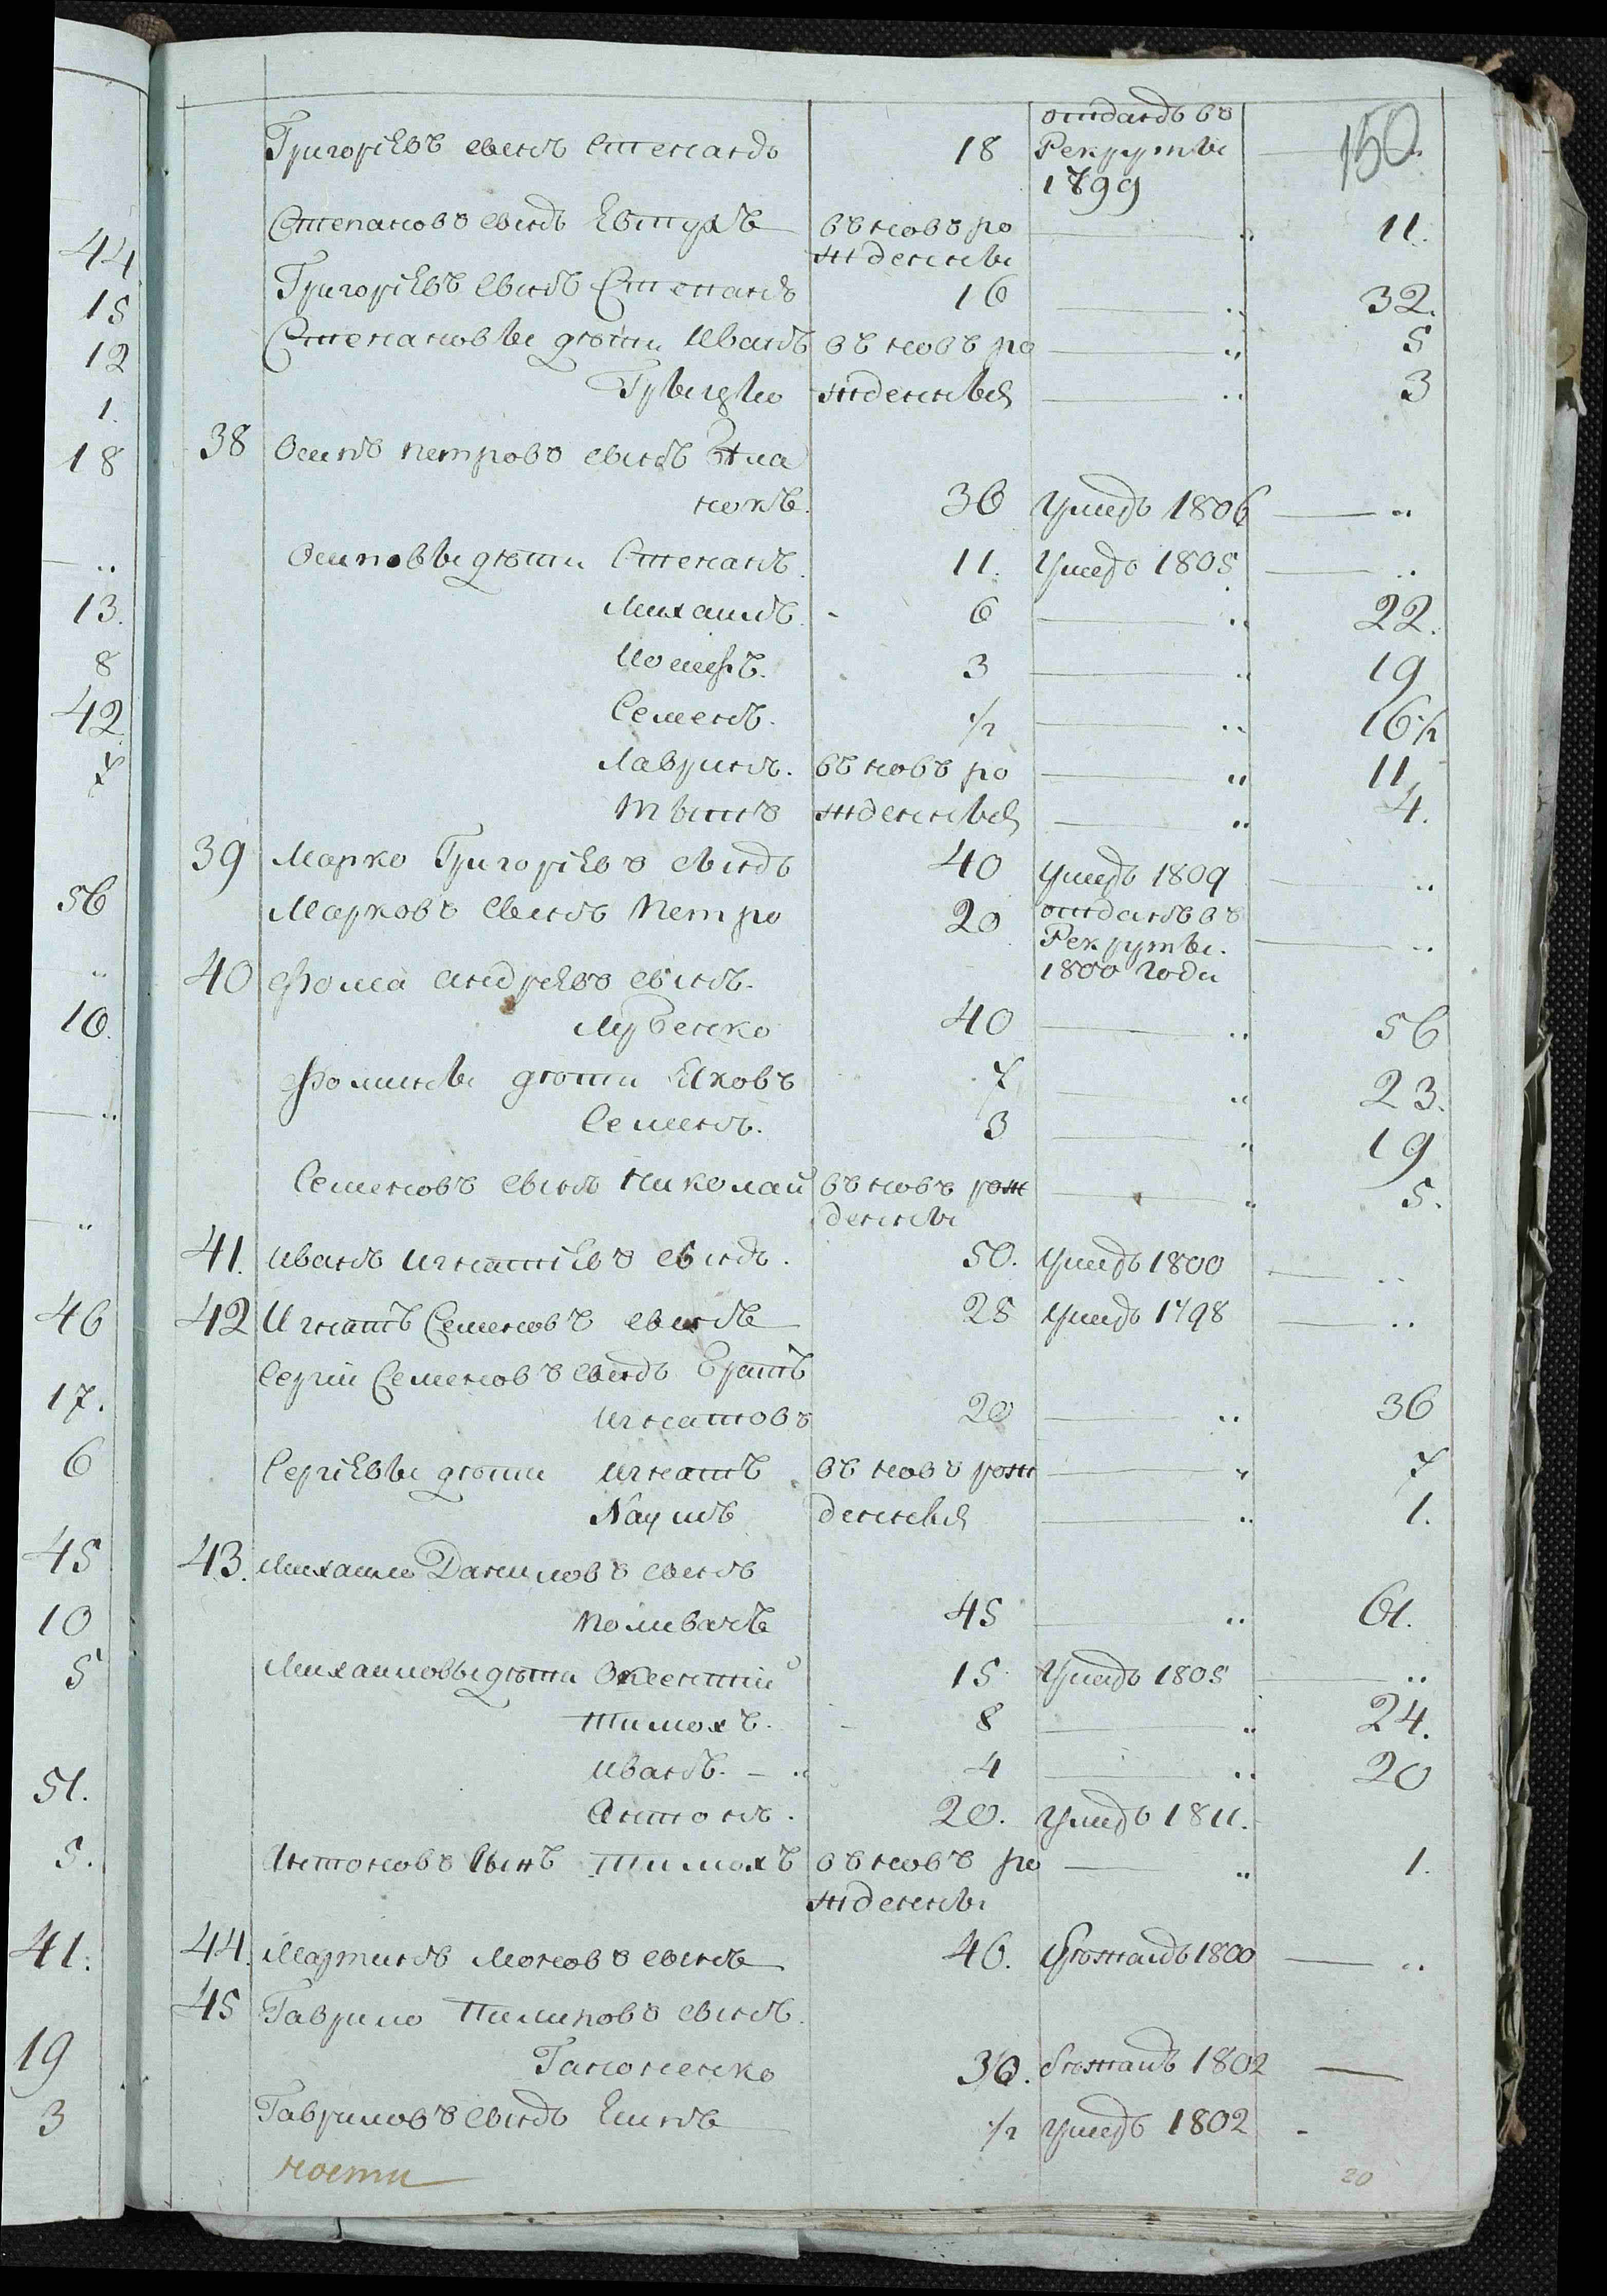 44
15
12
1.
18
13.
8
42
7
56
10.
46
17.
6
45
10
5
51.
5.
41.
19
3
150
Григорієвъ сынъ Степанъ 18 отданъ въ
Рекруты
1799
Степановъ сынъ Евтухъ въ новъ ро 11.
ждены
Григорієвъ сынъ Степанъ 16 32.
Степановы дѣти Иванъ въ новъ ро 5
ждены 3
38 Осипъ Петровъ сынъ
36 Умеръ 1806
Осиповы дѣти Степанъ. 11. Умеръ 1805
Михаилъ. 6 22.
Иосифъ. 3 19
Семенъ. 1/2 16 1/2
Лавринъ. въ новъ ро 11
Титъ ждены 4.
39 Марко Григорієвъ сынъ 40 Умеръ 1809
Марковъ сынъ Петро 20 отданъ въ
Рекруты.
1800 года
40 Фома Андрѣевъ сынъ.
Лубенско 40 56
Фомины дѣти Яковъ 7 23.
Семенъ. 3 19
Семеновъ сынъ Николай въ новъ рож 5.
дены
41. Иванъ Игнатієвъ сынъ. 50. Умеръ 1800
42 Игнатъ Семеновъ сынъ 28 Умеръ 1798
Сергій Семеновъ сынъ братъ
Игнатовъ 20 36
Сергієвы дѣти Игнатъ въ новъ рож 7
Наумъ дены 1.
43. Михайло Даниловъ сынъ
Поливачъ 45 61.
Михайловы дѣти 15 Умеръ 1805
Тимохъ. 8 24.
Иванъ. 4 20
Антонъ. 20. Умеръ 1811.
Антоновъ сынъ Тимохъ въ новъ ро 1.
ждены
44. Мартинъ сынъ 46. бѣжалъ 1800
45 Гаврило Пилиповъ сынъ.
Гапоненко 30. бѣжалъ 1802
Гавриловъ сынъ 1/2 Умеръ 1802
ности
20